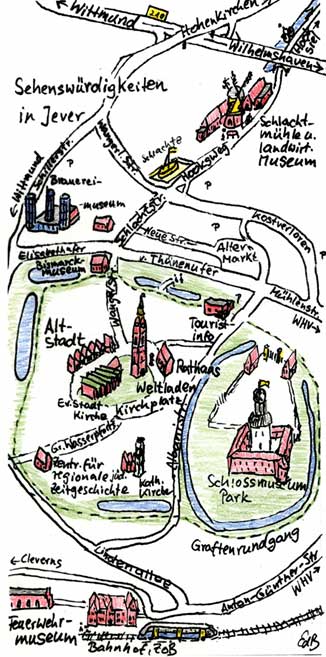 ← Wittmund
210
Hohenkirchen →
Wilhelmshaven →
Hooksiel
Sehenswürdigkeiten
in Jever
Schlacht-
mühle u.
landwirt.
Museum
Wangerl. Str.
Schlachte
Hooksweg
P
P
P
← Wittmund
Schillerstr.
Brauerei-
museum
Schlachtstr.
Kostverloren
Neue Str.
Alter
Markt
Elisabethufer
v. Thünenufer
Bismarck-
museum
Wangstr.
Mühlenstr.
WHV →
Tourist-
info
Alt-
stadt
Rathaus
Weltladen
Ev. Stadt-
Kirche
Kirchplatz
Gr. Wasserpfort
Zentr. für
Regionale jüd.
Zeitgeschichte
Kath.
Kirche
Schlossmuseum
Park
Graftenrundgang
← Cleverns
Lindenallee
Anton-Günther-Str
WHV →
Feuerwehr-
museum
Bahnhof, ZOB